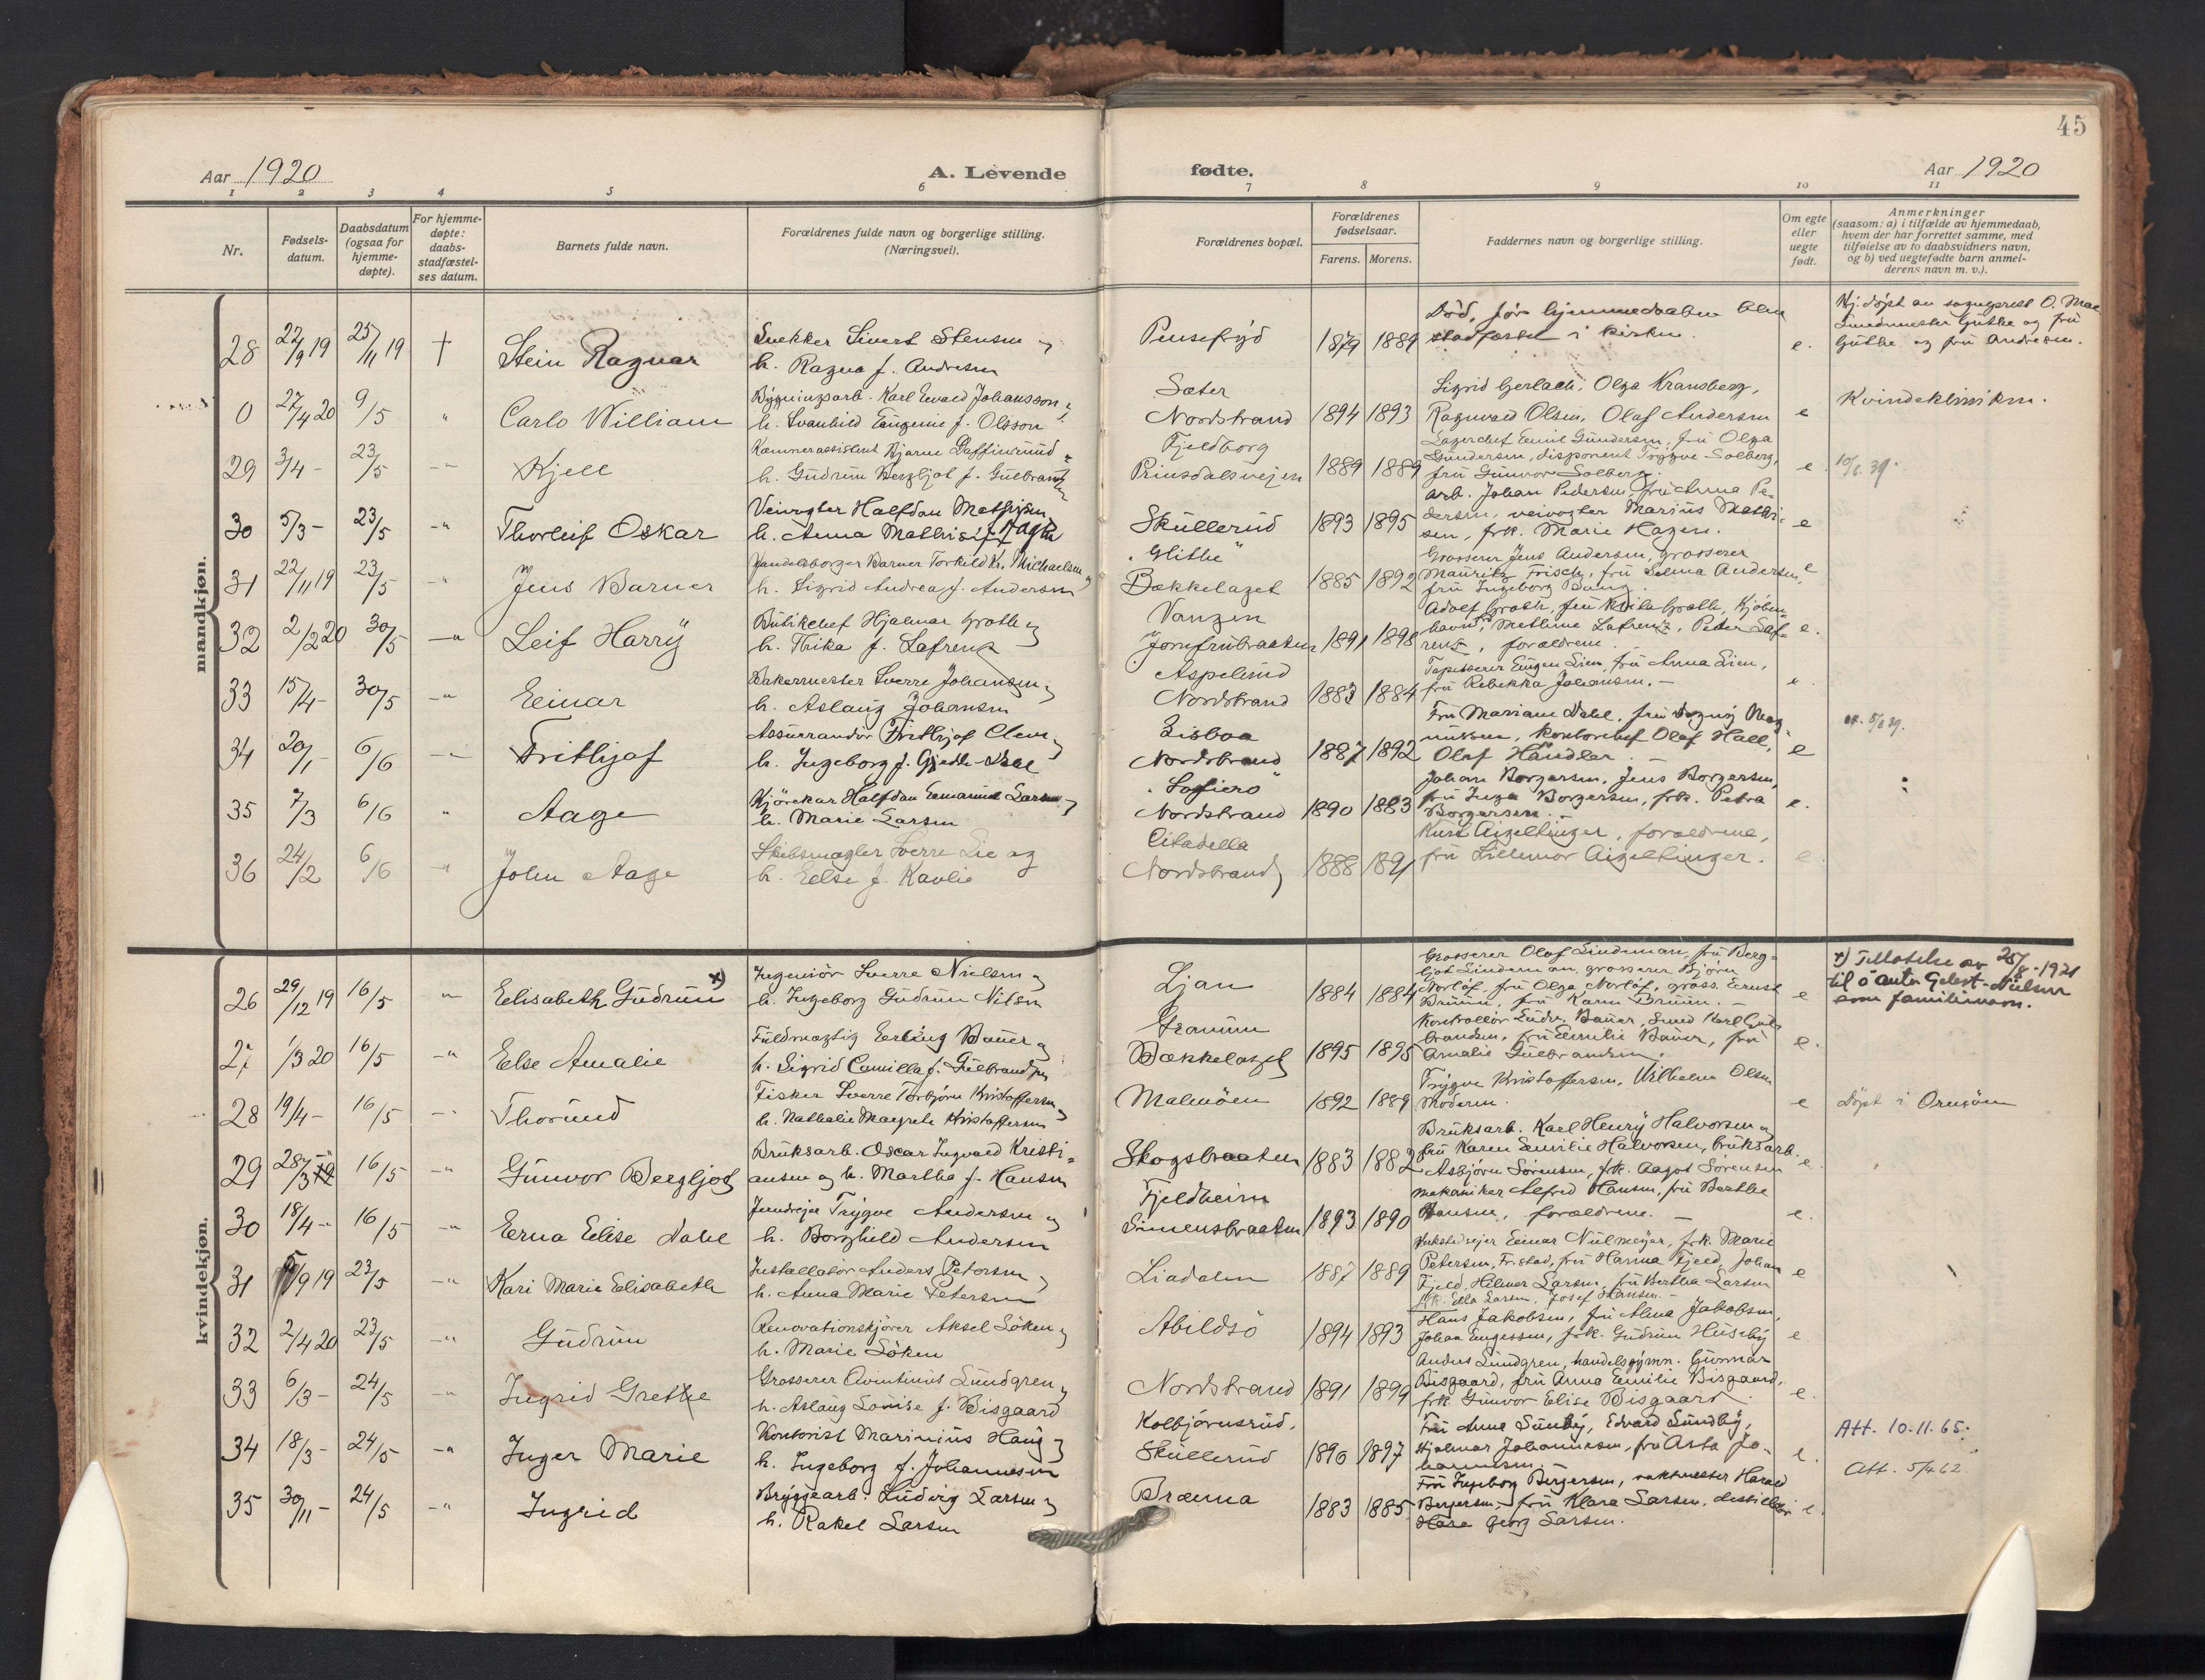 45
Aar 1920
A. Levende
fødte.
Aar 1920
1 2 3 4 5 6 7 8 9 10 11
Nr.
Fødsels-
datum.
Daabsdatum
(ogsaa for
hjemme-
døpte).
For hjemme-
døpte:
daabs-
stadfæstel-
ses datum.
Barnets fulde navn.
Forældrenes fulde navn og borgerlige stilling.
(Næringsvei).
Forældrenes bopæl.
Forældrenes
fødselsaar.
Farens. Morens.
Faddernes navn og borgerlige stilling.
Om egte
eller
uegte
født.
Anmerkninger
(saasom: a) i tilfælde av hjemmedaab,
hvem der har forrettet samme, med
tilføielse av to daabsvidners navn,
og b) ved uegtefødte barn anmel-
derens navn m. v.).
mandkjøn.
28 22/9 19 25/11 19 † Stein Ragnar
Snekker Sivert Stensen og
h. Ragna f. Andresen
1879 1889
Död, før hjemmedaaben blev
stadfæstet i kirken.
e.
0 27/4 20 9/5 " Carlo William
Bygningsarb. Karl Ewald Johansson og
h. Svanhild Eugenie f. Olsson
Sæter
Nordstrand 1894 1893
Sigrid Gerlach, Olga Kransberg,
Ragnvald Olsen, Olaf Andersen
e
Kvindeklinikken.
29 3/4 - 23/5 -"- Kjell
h. Gudrun Bergljot f. Gulbrandsen
Fjeldborg
Prinsdalsvejen 1889 1889
Lagerchef Emil Gundersen, fru Olga
Gundersen, disponent Trygve Solberg,
fru Gunvor Solberg.
e. 10/6. 39.
30 5/3 - 23/5 -" Thorleif Oskar
Veivogter Halfdan Mathisen
h. Anna Mathisen f. Hagen
Skullerud 1893 1895
arb. Johan Pedersen, fru Anna Pe-
dersen, veivogter Marius Mathi-
sen, frk. Marie Hagen.
e
31 22/11 19 23/5 -" Jens Barner
Handelsborger Barner Torkild Kr. Michaelsen
h. Sigrid Andrea f. Andersen
"Hitthe"
Bækkelaget 1885 1892
Grosserer Jens Andersen, grosserer
Mauritz Frisch, fru Selma Andersen,
fru Ingeborg Bang.
e
32 2/2 20 30/5 -" Leif Harry
Butikchef Hjalmar Groth og
h. Thika f. Lafrenz
Vangen
Jomfrubraaten 1891 1898
havn, Methine Lafrenz, Peter Laf-
renz, forældrene.
e.
33 15/4 - 30/5 -" Einar
Bakermester Sverre Johansen og
h. Aslaug Johansen
Aspelund
Nordstrand 1883 1884
Tapetserer Eugen Lien, fru Anna Lien,
fru Rebekka Johansen. -
e.
34 20/1 - 6/6 -" Frithjof
Assurandör Frithjof Clem og
Lisboa
Nordstrand 1887 1892
nussen, kontorchef Olaf Hall,
Olaf Händler. -
e
35 7/3 6/6 " Aage
Kjörekar Halfdan Emanuel Larsen og
h. Marie Larsen
"Sofiero"
Nordstrand 1890 1883
Johan Borgersen, Jens Borgersen,
fru Inga Borgersen, frk. Petra
Borgersen. -
e.
36 24/2 6/6 -" John Aage
Skibsmægler Sverre Lie og
h. Else f. Kavlie
Citadella
Nordstrand 1888 1891
Kurt Aigeltinger, forældrene,
fru Lillemor Aigeltinger.
e.
kvindekjøn.
26 29/12 19 16/5 " Elisabeth Gudrun x)
Ingeniör Sverre Nielsen og
h. Ingeborg Gudrun Nilsen
Ljan 1884 1884
Grosserer Olaf Lindeman, fru Berg-
ljot Lindeman, grosserer Björn
Norlöf, fru Olga Norlöf, gross. Ernst
Bruun, fru Karen Bruun. -
e
x) Tillatelse av 25/8 - 1921
til å anta -Nielsen
som familienavn.
27 1/3 20 16/5 -" Else Amalie
Fuldmægtig Erling Bauer og
h. Sigrid Camilla f. Gulbrandsen
Bækkelaget 1895 1895
brandsen, fru Emilie Bauer, fru
Amalie Gulbrandsen.
e.
28 19/4 - 16/5 -" Thorund
Fisker Sverre Torbjörn Kristoffersen og
h. Nathalie Margrete Kristoffersen
Malmöen 1892 1889
Trygve Kristoffersen, Wilhelm Olsen
Moderen.
e
Döpt i Ormöen
29 28/3 16/5 -" Gunvor Bergljot
Bruksarb. Oscar Ingvald Kristi-
ansen og h. Martha f. Hansen
Skogsbraaten 1883 1882
Bruksarb. Karl Henry Halvorsen og
fru Karen Emilie Halvorsen, bruksarb.
Asbjörn Sörensen, frk. Aagot Sörensen
e.
30 18/4 - 16/5 -" Erna Elise Dahl
h. Borghild Andersen
Fjeldheim
Simensbraaten 1893 1890
Mekaniker Alfred Hansen, fru Berthe
Hansen, forældrene. -
e.
31 9 19 23/5 -" Kari Marie Elisabeth
Installatör Anders Petersen og
h. Anna Marie Petersen
Liadalen 1887 1889
Verkstedeier Einar Nilmeyer, frk. Marie
Petersen, Fr.stad, fru Hanna Fjeld, Johan
Fjeld, Hilmar Larsen, fru Bertha Larsen
frk. Ella Larsen, Josef Hansen. -
e
32 2/4 20 23/5 -" Gudrun
Renovationskjörer Aksel Löken og
h. Marie Löken
Abildsö 1894 1893
Hans Jakobsen, fru Alma Jakobsen,
Johan Engessen, frk. Gudrun Huseby
e.
33 6/3 - 24/5 -" Ingrid Grethe
Grosserer Aventinus Lundgren og
h. Aslaug Louise f. Bisgaard
Nordstrand 1891 1899
Anders Lundgren, handelsgymn. Gunnar
Bisgaard, fru Anna Emilie Bisgaard,
frk. Gunvor Elise Bisgaard.
e.
34 18/3 - 24/5 -" Inger Marie
Kontorist Marinius Haug og
h. Ingeborg f. Johannesen
Kolbjörnsrud,
Skullerud 1890 1897
Fru Anna Sundby, Edvard Sundby,
Hjalmar Johannesen, fru Asta Jo-
hannesen.
e.
Att. 10.11.65.
35 30/11 - 24/5 -" Ingrid
Bryggearb. Ludvig Larsen og
h. Rakel Larsen
Brænna 1883 1885
Fru Ingeborg Bergersen, vaktmester Harald
Bergersen, fru Klara Larsen, destillatör
Georg Larsen.
e.
Att. 5/4 62.